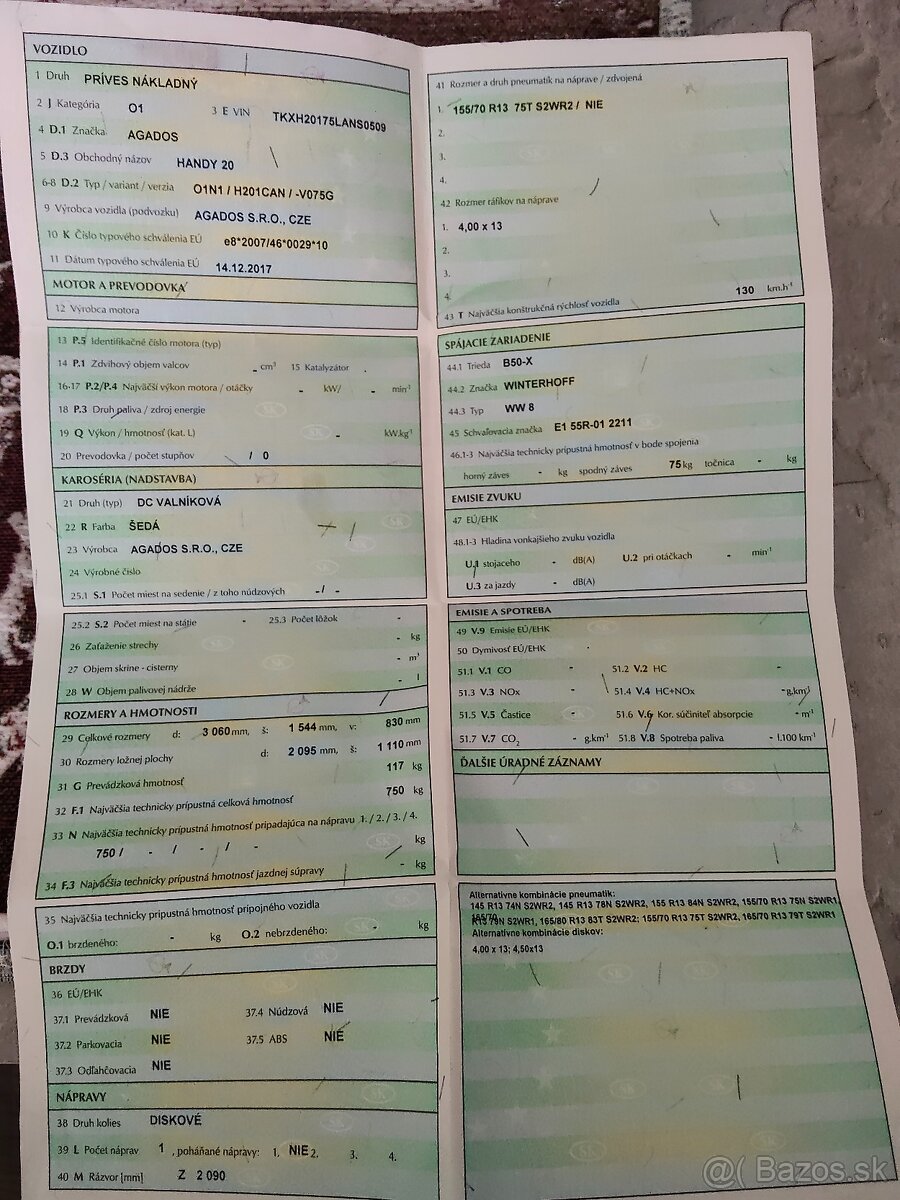 VOZIDLO
1 Druh PRÍVES NÁKLADNÝ
2 J Kategória O1 3 E VIN TKXH20175LANS0509
4 D.1 Značka AGADOS
5 D.3 Obchodný názov HANDY 20
6-8 D.2 Typ / variant / verzia O1N1 / H201CAN / -V075G
9 Výrobca vozidla (podvozku) AGADOS S.R.O., CZE
10 K Číslo typového schválenia EÚ e8*2007/46*0029*10
11 Dátum typového schválenia EÚ 14.12.2017
MOTOR A PREVODOVKA
12 Výrobca motora
13 P.5 Identifikačné číslo motora (typ)
14 P.1 Zdvihový objem valcov - cm³ 15 Katalyzátor .
16-17 P.2/P.4 Najväčší výkon motora / otáčky - kW/ - min⁻¹
18 P.3 Druh paliva / zdroj energie
19 Q Výkon / hmotnosť (kat. L) - kW.kg⁻¹
20 Prevodovka / počet stupňov / 0
KAROSÉRIA (NADSTAVBA)
21 Druh (typ) DC VALNÍKOVÁ
22 R Farba ŠEDÁ
23 Výrobca AGADOS S.R.O., CZE
24 Výrobné číslo
25.1 S.1 Počet miest na sedenie / z toho núdzových - / -
25.2 S.2 Počet miest na státie - 25.3 Počet lôžok -
26 Zaťaženie strechy - kg
27 Objem skrine - cisterny - m³
28 W Objem palivovej nádrže - l
ROZMERY A HMOTNOSTI
29 Celkové rozmery d: 3 060 mm, š: 1 544 mm, v: 830 mm
30 Rozmery ložnej plochy d: 2 095 mm, š: 1 110 mm
31 G Prevádzková hmotnosť 117 kg
32 F.1 Najväčšia technicky prípustná celková hmotnosť 750 kg
33 N Najväčšia technicky prípustná hmotnosť pripadajúca na nápravu 1. / 2. / 3. / 4.
750 / - / - / - kg
34 F.3 Najväčšia technicky prípustná hmotnosť jazdnej súpravy - kg
35 Najväčšia technicky prípustná hmotnosť prípojného vozidla
O.1 brzdeného: - kg O.2 nebrzdeného: - kg
BRZDY
36 EÚ/EHK
37.1 Prevádzková NIE 37.4 Núdzová NIE
37.2 Parkovacia NIE 37.5 ABS NIE
37.3 Odľahčovacia NIE
NÁPRAVY
38 Druh kolies DISKOVÉ
39 L Počet náprav 1 , poháňané nápravy: 1. NIE 2. 3. 4.
40 M Rázvor [mm] Z 2 090
41 Rozmer a druh pneumatík na náprave / zdvojená
1. 155/70 R13 75T S2WR2 / NIE
2.
3.
4.
42 Rozmer ráfikov na náprave
1. 4,00 x 13
2.
3.
4.
43 T Najväčšia konštrukčná rýchlosť vozidla 130 km.h⁻¹
SPÁJACIE ZARIADENIE
44.1 Trieda B50-X
44.2 Značka WINTERHOFF
44.3 Typ WW 8
45 Schvaľovacia značka E1 55R-01 2211
46.1-3 Najväčšia technicky prípustná hmotnosť v bode spojenia
horný záves - kg spodný záves 75 kg točnica - kg
EMISIE ZVUKU
47 EÚ/EHK
48.1-3 Hladina vonkajšieho zvuku vozidla
U.1 stojaceho - dB(A) U.2 pri otáčkach - min⁻¹
U.3 za jazdy - dB(A)
EMISIE A SPOTREBA
49 V.9 Emisie EÚ/EHK
50 Dymivosť EÚ/EHK
51.1 V.1 CO - 51.2 V.2 HC -
51.3 V.3 NOx - 51.4 V.4 HC+NOx - g.km⁻¹
51.5 V.5 Častice - 51.6 V.6 Kor. súčiniteľ absorpcie - m⁻¹
51.7 V.7 CO₂ - g.km⁻¹ 51.8 V.8 Spotreba paliva - l.100 km⁻¹
ĎALŠIE ÚRADNÉ ZÁZNAMY
Alternatívne kombinácie pneumatík:
145 R13 74N S2WR2, 145 R13 78N S2WR2, 155 R13 84N S2WR2, 155/70 R13 75N S2WR1,
165/70
R13 79N S2WR1, 165/80 R13 83T S2WR2; 155/70 R13 75T S2WR2, 165/70 R13 79T S2WR1
Alternatívne kombinácie diskov:
4,00 x 13; 4,50x13
@( Bazos.sk